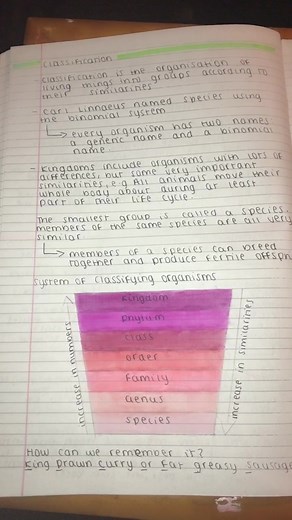 Classification
- Classification is the organisation of
living things into groups according to
their similarities
- Carl Linnaeus named species using
the binomial system
every organism has two names
a generic name and a binomial
name
- Kingdoms include organisms with lots of
differences but some very important
similarities, e.g. All animals move their
whole body about during at least
part of their life cycle.
The smallest group is called a species,
members of the same species are all very
similar
members of a species can breed
together and produce fertile offspr
System of classifying organisms
Kingdom
Phylum
Class
Order
Family
Genus
Species
increase in numbers
increase in similarities
How can we remember it?
King Prawn Curry Or Fat Greasy Sausage